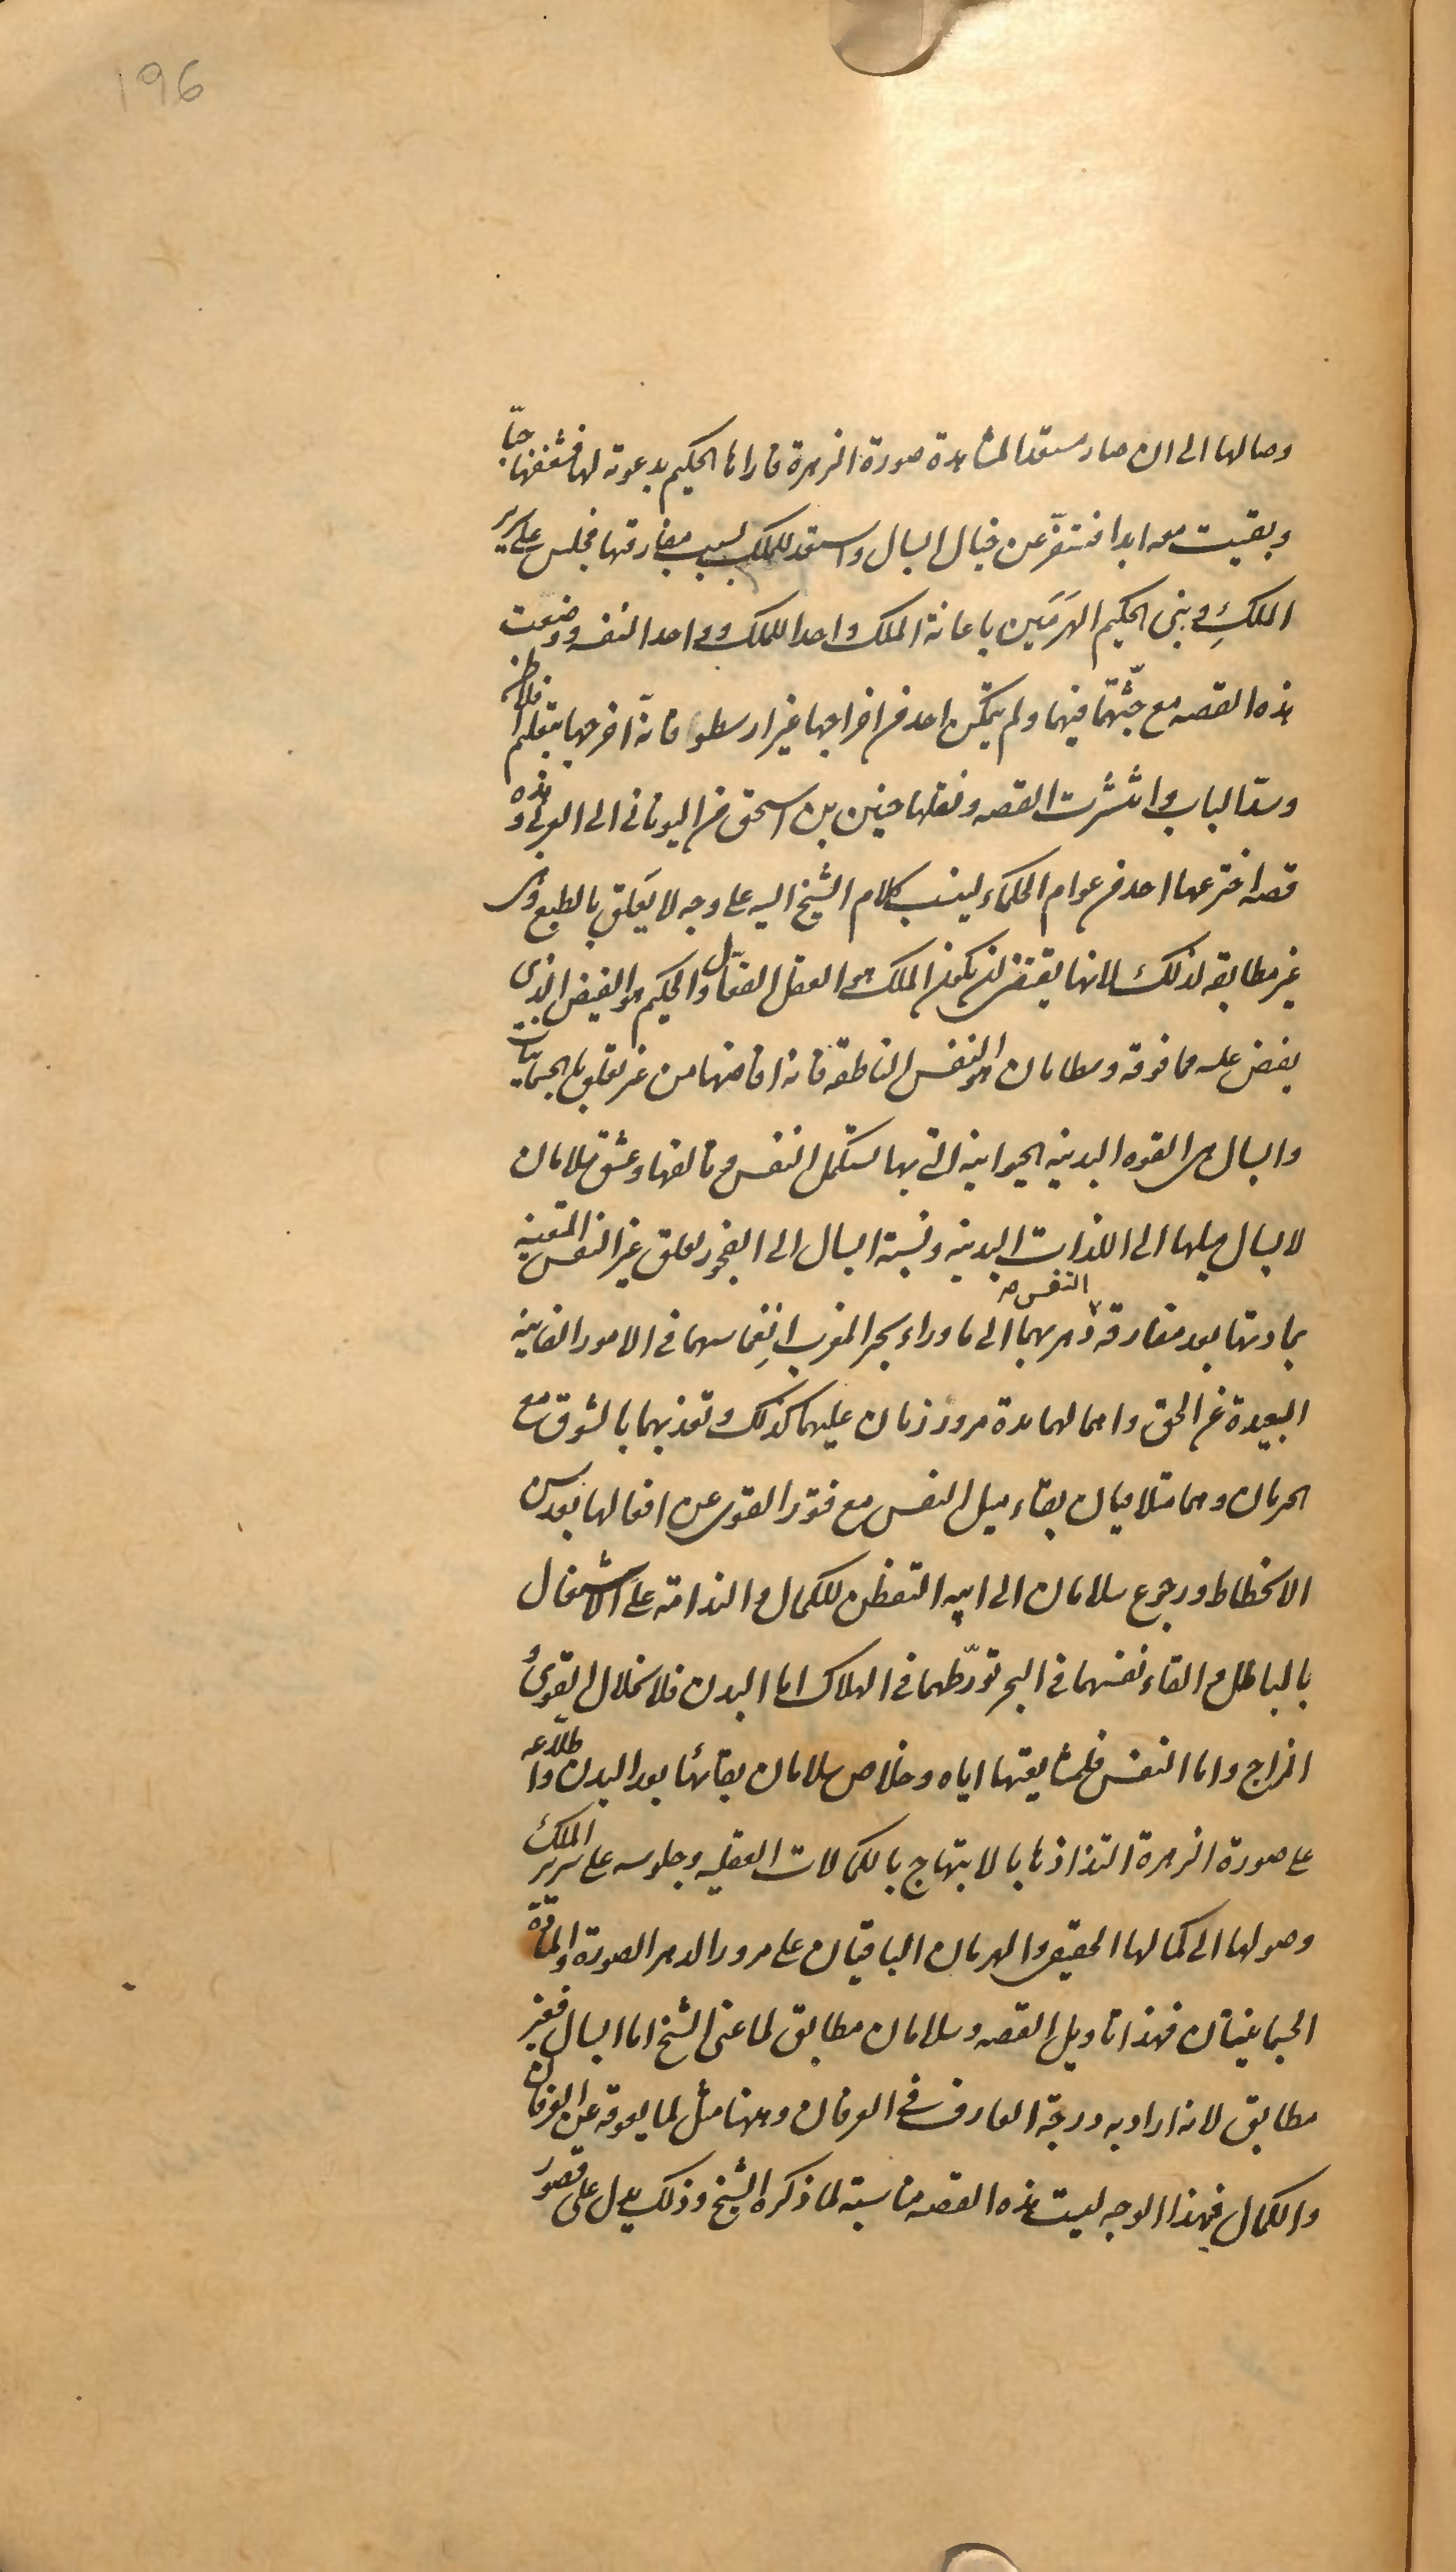 196
وصالها الى ان صار مستعدا لمشاهدة صورة الزهرة فاراها الحكيم بدعوته لها فشغفها حبّا
وبقيت معه ابدا فتنفّر عن خيال ابسال واستعد للملك بسبب مفارقتها فجلس على سرير
الملك وبنى الحكيم الهرمين باعانة الملك واحدا للملك وواحدا لنفسه ووضعت
هذه القصه مع جثّتهما فيهما ولم يتمكن احد من اخراجها غير ارسطو فانه اخرجها بتعليم افلاطن
وسدّ الباب وانتشرت القصه ونقلها حنين بن اسحق من اليونانى الى العربى وهذه
قصه اخترعها احد من عوام الحكماء لينسب كلام الشيخ اليه على وجه لا يعلق بالطبع وهى
غير مطابقه لذلك لانها يقتضى ان يكون الملك هو العقل الفعّال والحكيم هو الفيض الذى
يفيض عليه مما فوقه وسلامان هو النفس الناطقه فانه افاضها من غير تعلق بالجسمانيات
وابسال هى القوه البدنيه الحيوانيه التى بها تستكمل النفس وتالفها وعشق سلامان
لابسال ميلها الى اللذات البدنيه ونسبة ابسال الى الفجور تعلق غير النفس المتعينه
بمادتها بعد مفارقه النفس وهربهما الى ما وراء بحر المغرب انغماسهما فى الامور الفانيه
البعيدة عن الحق واهمالهما مدة مرور زمان عليهما كذلك وتعذيبهما بالشوق مع
الحرمان وهما متلاقيان بقاء ميل النفس مع فتور القوى عن افعالها بعد سن
الانحطاط ورجوع سلامان الى ابيه التفطن للكمال والندامة على الاشتغال
بالباطل والقاء نفسهما فى البحر تورّطهما فى الهلاك اما البدن فلانحلال القوى و
المزاج واما النفس فلمشايعتها اياه وخلاص سلامان بقائها بعد البدن واطلاعه
على صورة الزهرة التذاذها بالابتهاج بالكمالات العقليه وجلوسه على سرير الملك
وصولها الى كمالها الحقيقى والهرمان الباقيان على مرور الدهر الصورة والمادة
الجسمانيتان فهذا تاويل القصه وسلامان مطابق لما عنى الشيخ اما ابسال فغير
مطابق لانه اراد به درجة العارف فى العرفان وههنا مثل لما يعوقه عن العرفان
والكمال فبهذا الوجه ليست هذه القصه مناسبة لما ذكره الشيخ وذلك يدل على قصور